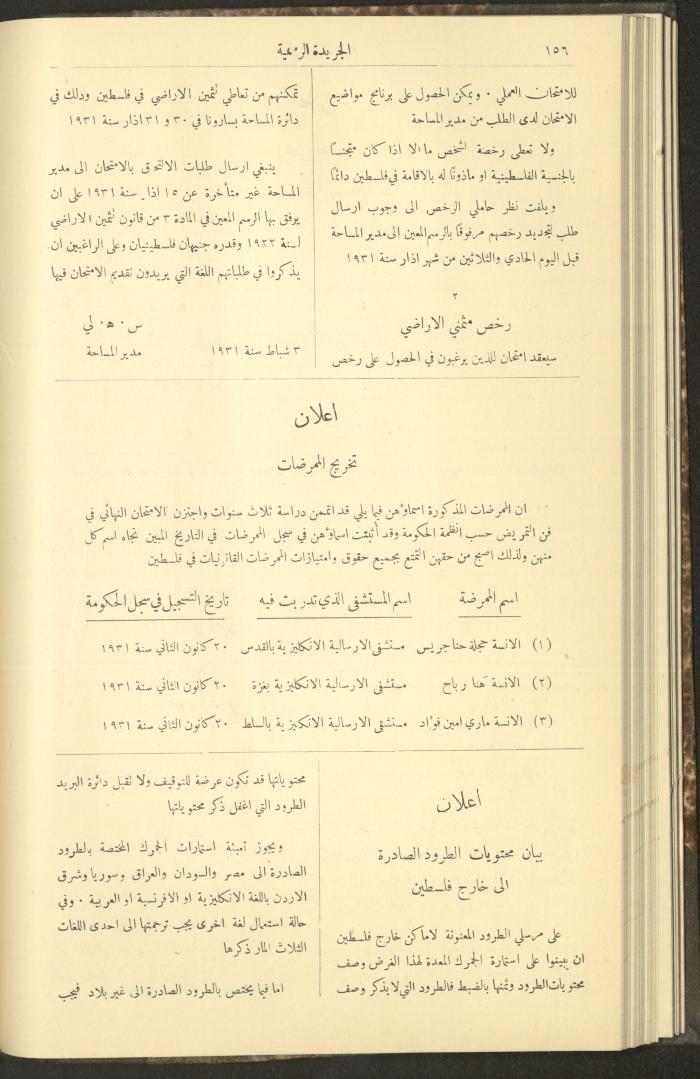 ١٥٦
الجريدة الرسمية
للامتحان العملي . ويمكن الحصول على برنامج مواضيع
الامتحان لدى الطلب من مدير المساحة
ولا تعطى رخصة لشخص ما الا اذا كان متجنسًا
بالجنسية الفلسطينية او ماذونًا له بالاقامة في فلسطين دائمًا
ويلفت نظر حاملي الرخص الى وجوب ارسال
طلب لتجديد رخصهم مرفوقًا بالرسم المعين الى مدير المساحة
قبل اليوم الحادي والثلاثين من شهر اذار سنة ١٩٣١
٢
رخص مثمني الاراضي
سيعقد امتحان للذين يرغبون في الحصول على رخص
تمكنهم من تعاطي تثمين الاراضي في فلسطين وذلك في
دائرة المساحة بسارونا في ٣٠ و ٣١ اذار سنة ١٩٣١
ينبغي ارسال طلبات الالتحاق بالامتحان الى مدير
المساحة غير متأخرة عن ١٥ اذار سنة ١٩٣١ على ان
يرفق بها الرسم المعين في المادة ٣ من قانون تثمين الاراضي
لسنة ١٩٢٢ وقدره جنيهان فلسطينيان وعلى الراغبين ان
يذكروا في طلباتهم اللغة التي يريدون تقديم الامتحان فيها
س . ه . لي
٣ شباط سنة ١٩٣١ مدير المساحة
اعلان
تخريج الممرضات
ان الممرضات المذكورة اسماؤهن فيما يلي قد اتممن دراسة ثلاث سنوات واجتزن الامتحان النهائي في
فن التمريض حسب انظمة الحكومة وقد أثبقت اسماؤهن في سجل الممرضات في التاريخ المبين تجاه اسم كل
منهن ولذلك اصبح من حقهن التمتع بجميع حقوق وامتيازات الممرضات القانونيات في فلسطين
اسم الممرضة اسم المستشفى الذي تدربت فيه تاريخ التسجيل في سجل الحكومة
(١) الانسة حجلة حنا جريس مستشفى الارسالية الانكليزية بالقدس ٢٠ كانون الثاني سنة ١٩٣١
(٢) الانسة هنا رباح مستشفى الارسالية الانكليزية بغزة ٢٠ كانون الثاني سنة ١٩٣١
(٣) الانسة ماري امين فؤاد مستشفى الارسالية الانكليزية بالسلط ٢٠ كانون الثاني سنة ١٩٣١
اعلان
بيان محتويات الطرود الصادرة
الى خارج فلسطين
على مرسلي الطرود المعنونة لاماكن خارج فلسطين
ان يبينوا على استمارة الجمرك المعدة لهذا الغرض وصف
محتويات الطرود وثمنها بالضبط فالطرود التي لا يذكر وصف
محتوياتها قد تكون عرضة للتوقيف ولا تقبل دائرة البريد
الطرود التي اغفل ذكر محتوياتها
ويجوز تعبئة استمارات الجمرك المختصة بالطرود
الصادرة الى مصر والسودان والعراق وسوريا وشرق
الاردن باللغة الانكليزية او الافرنسية او العربية . وفي
حالة استعمال لغة اخرى يجب ترجمتها الى احدى اللغات
الثلاث المار ذكرها
اما فيما يختص بالطرود الصادرة الى غير بلاد فيجب